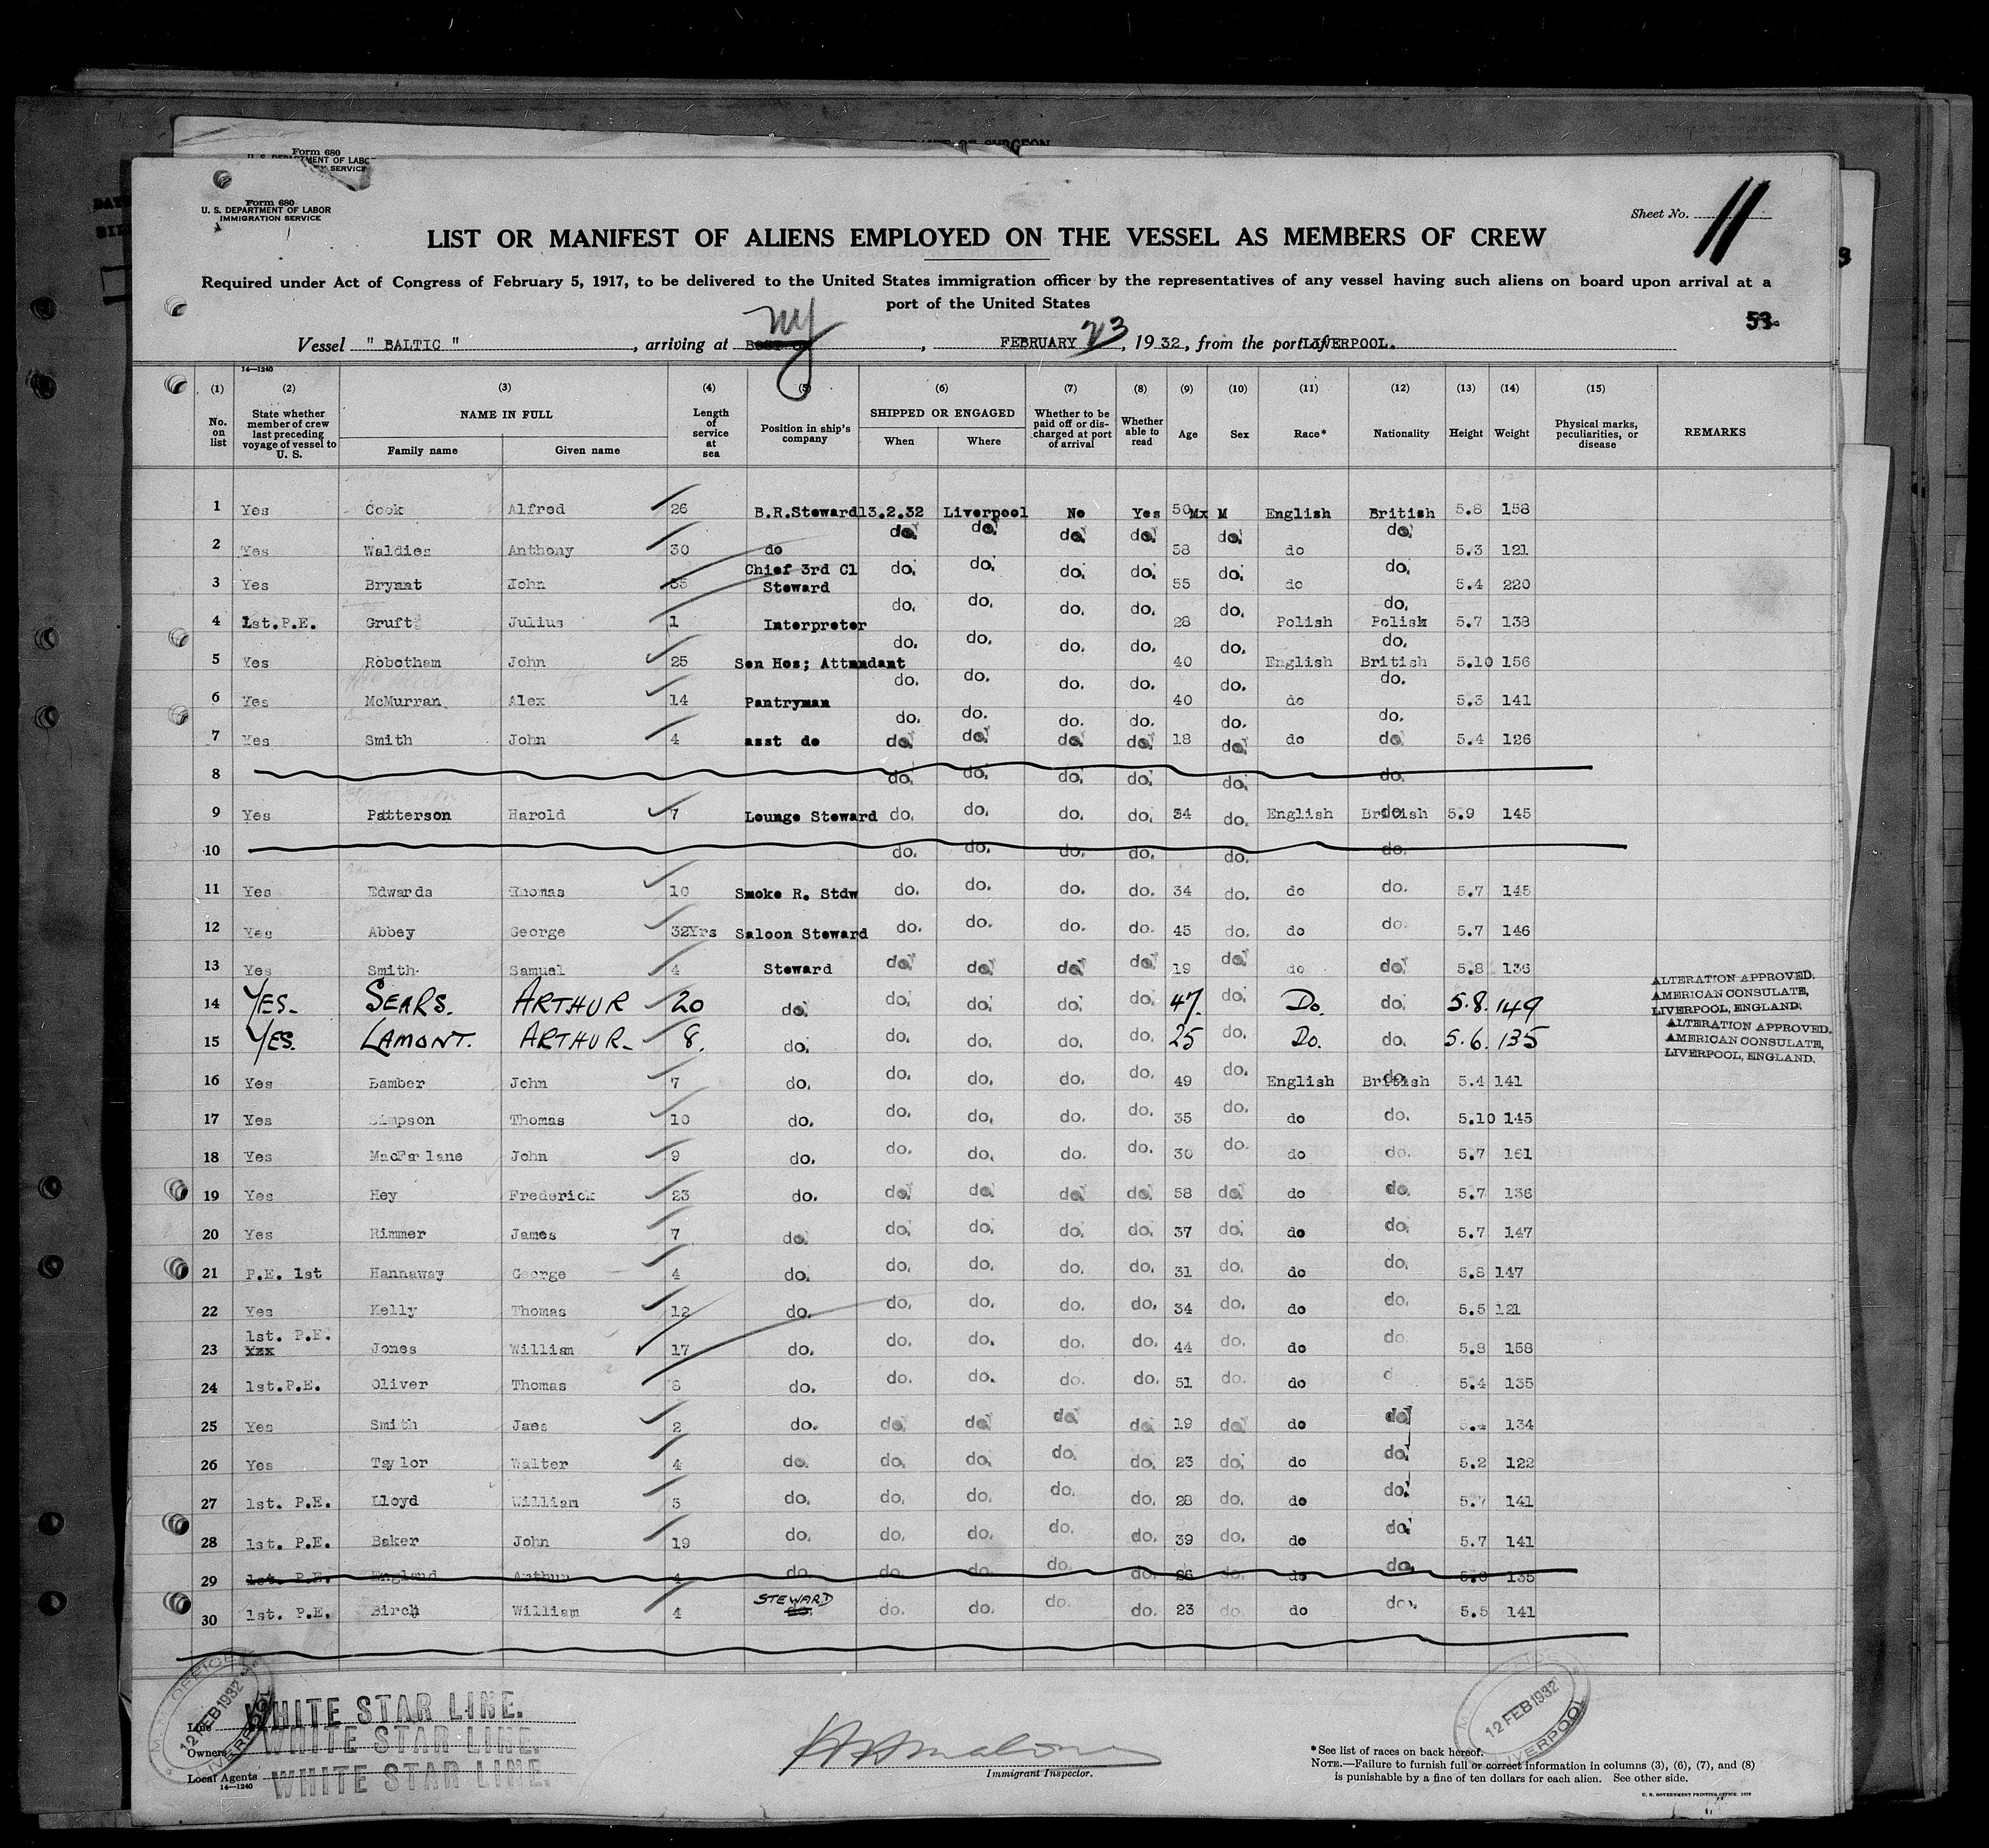 Form 680
U. S. DEPARTMENT OF LABOR
IMMIGRATION SERVICE
Sheet No. 11
LIST OR MANIFEST OF ALIENS EMPLOYED ON THE VESSEL AS MEMBERS OF CREW
Required under Act of Congress of February 5, 1917, to be delivered to the United States immigration officer by the representatives of any vessel having such aliens on board upon arrival at a
port of the United States
53.
Vessel " BALTIC " , arriving at NY , FEBRUARY 23 , 1932 , from the port of LIVERPOOL.
14—1240
(1) (2) (3) (4) (5) (6) (7) (8) (9) (10) (11) (12) (13) (14) (15)
No. on list State whether member of crew last preceding voyage of vessel to U. S. NAME IN FULL Family name Given name Length of service at sea Position in ship's company SHIPPED OR ENGAGED When Where Whether to be paid off or discharged at port of arrival Whether able to read Age Sex Race* Nationality Height Weight Physical marks, peculiarities, or disease REMARKS
1 Yes Cook Alfred 26 B.R.Steward 13.2.32 Liverpool No Yes 50 M English British 5.8 158
2 Yes Waldies Anthony 30 do do. do. do. do. 58 do. do do. 5.3 121
3 Yes Bryant John 35 Chief 3rd Cl Steward do. do. do. do. 55 do. do do. 5.4 220
4 1st.P.E. Gruft Julius 1 Interpreter do. do. do. do. 28 do. Polish do. Polish 5.7 138
5 Yes Robotham John 25 Sen Hos; Attandant do. do. do. do. 40 do. English do. British 5.10 156
6 Yes McMurran Alex 14 Pantryman do. do. do. do. 40 do. do do. 5.3 141
7 Yes Smith John 4 asst do do. do. do. do. 18 do. do do. 5.4 126
8 do. do. do. do. do. do.
9 Yes Patterson Harold 7 Lounge Steward do. do. do. do. 34 do. English British 5.9 145
10 do. do. do. do. do. do.
11 Yes Edwards Thomas 10 Smoke R. Stdw do. do. do. do. 34 do. do do. 5.7 145
12 Yes Abbey George 32Yrs Saloon Steward do. do. do. do. 45 do. do do. 5.7 146
13 Yes Smith Samuel 4 Steward do. do. do. do. 19 do. do do. 5.8 136
14 YES. SEARS. ARTHUR 20 do. do. do. do. do. 47. do. Do. do. 5.8. 149 ALTERATION APPROVED. AMERICAN CONSULATE, LIVERPOOL, ENGLAND.
15 YES. LAMONT. ARTHUR 8. do. do. do. do. do. 25 do. Do. do. 5.6. 135 ALTERATION APPROVED. AMERICAN CONSULATE, LIVERPOOL, ENGLAND.
16 Yes Bamber John 7 do. do. do. do. do. 49 do. English British 5.4 141
17 Yes Simpson Thomas 10 do. do. do. do. do. 35 do. do do. 5.10 145
18 Yes MacFarlane John 9 do. do. do. do. do. 30 do. do do. 5.7 161
19 Yes Hey Frederick 23 do. do. do. do. do. 58 do. do do. 5.7 136
20 Yes Rimmer James 7 do. do. do. do. do. 37 do. do do. 5.7 147
21 P.E. 1st Hannaway George 4 do. do. do. do. do. 31 do. do do. 5.8 147
22 Yes Kelly Thomas 12 do. do. do. do. do. 34 do. do do. 5.5 121
23 1st. P.E. Jones William 17 do. do. do. do. do. 44 do. do do. 5.8 158
24 1st.P.E. Oliver Thomas 8 do. do. do. do. do. 51 do. do 5.4 135
25 Yes Smith Jaes 2 do. do. do. do. do. 19 do. do do. 134
26 Yes Taylor Walter 4 do. do. do. do. do. 23 do. do do. 5.2 122
27 1st. P.E. Lloyd William 5 do. do. do. do. do. 28 do. do do. 5.7 141
28 1st. P.E. Baker John 19 do. do. do. do. do. 39 do. do do. 5.7 141
29 1st. P.E. England Arthur 4 do. do. do. do. do. 26 do. do do. 135
30 1st. P.E. Birch William 4 STEWARD do. do. do. do. do. 23 do. do do. 5.5 141
Line WHITE STAR LINE.
Owners WHITE STAR LINE.
Local Agents WHITE STAR LINE.
14—1240
12 FEB 1932
LIVERPOOL
Immigrant Inspector.
12 FEB 1932
LIVERPOOL
*See list of races on back hereof.
NOTE.—Failure to furnish full or correct information in columns (3), (6), (7), and (8)
is punishable by a fine of ten dollars for each alien. See other side.